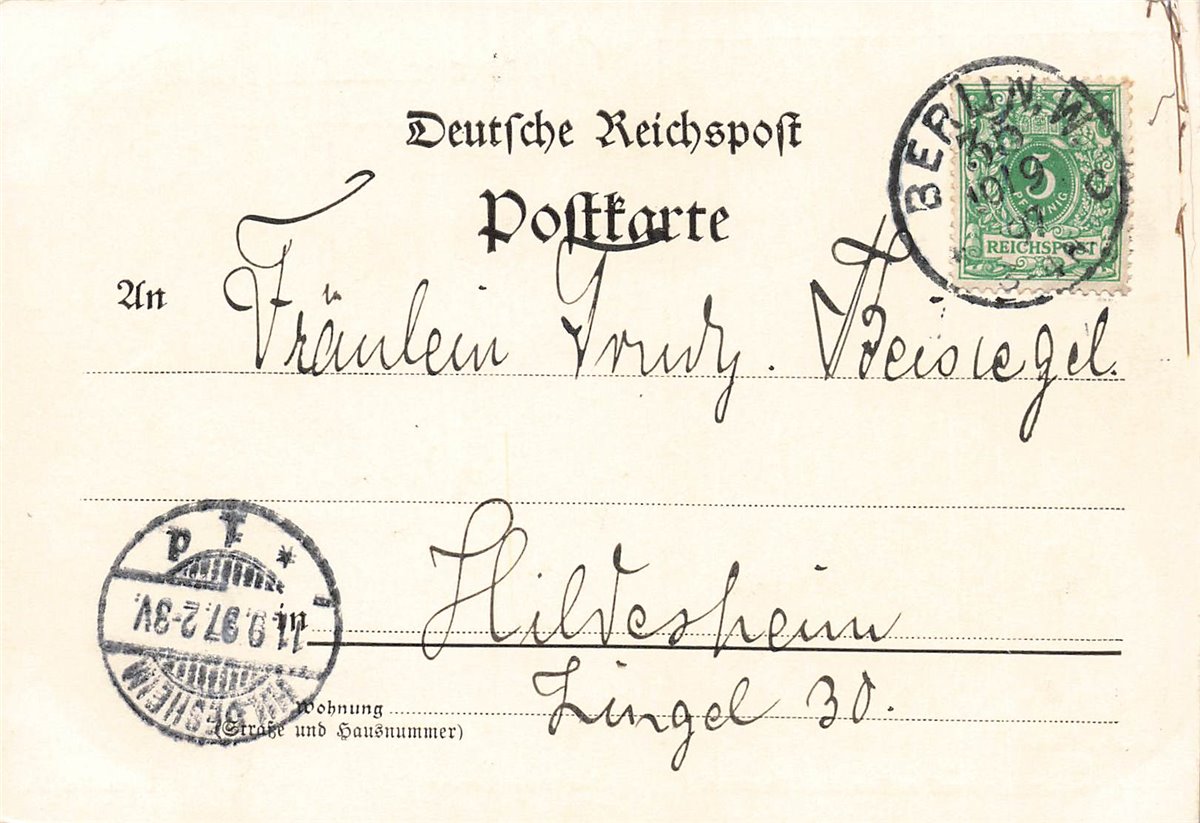 Deutsche Reichspost
Postkarte
BERLIN. W.
35
10/9
97
C
5
PFENNIG
REICHSPOST
An Fräulein Trudy. Beisiegel.
Hildesheim
in
Zingel 30.
Wohnung
(Straße und Hausnummer)
HILDESHEIM
11.9.97.2-3V.